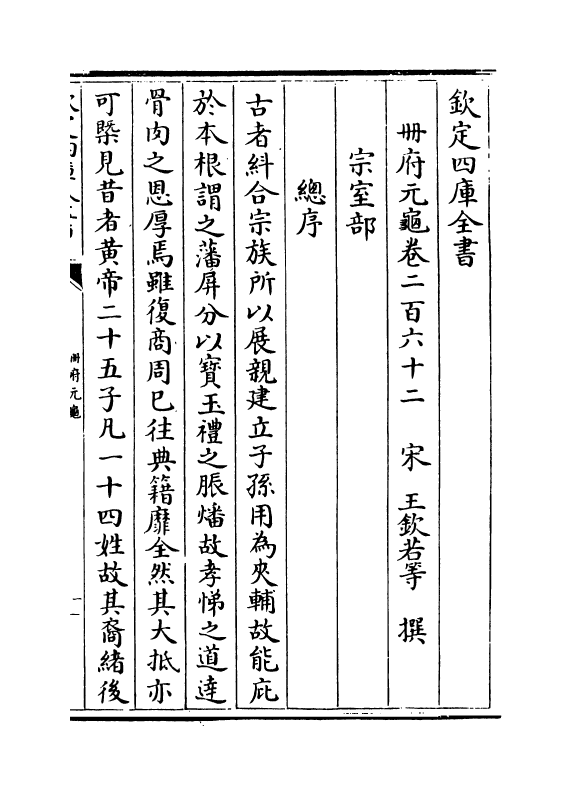 欽定四庫全書
冊府元龜卷二百六十二　宋　王欽若等　撰
宗室部
總序
古者糾合宗族所以展親建立子孫用為夾輔故能庇
於本根謂之藩屏分以寶玉禮之脤燔故孝悌之道達
骨肉之恩厚焉雖復商周已往典籍靡全然其大抵亦
可槩見昔者黄帝二十五子凡一十四姓故其裔緒後
冊府元龜